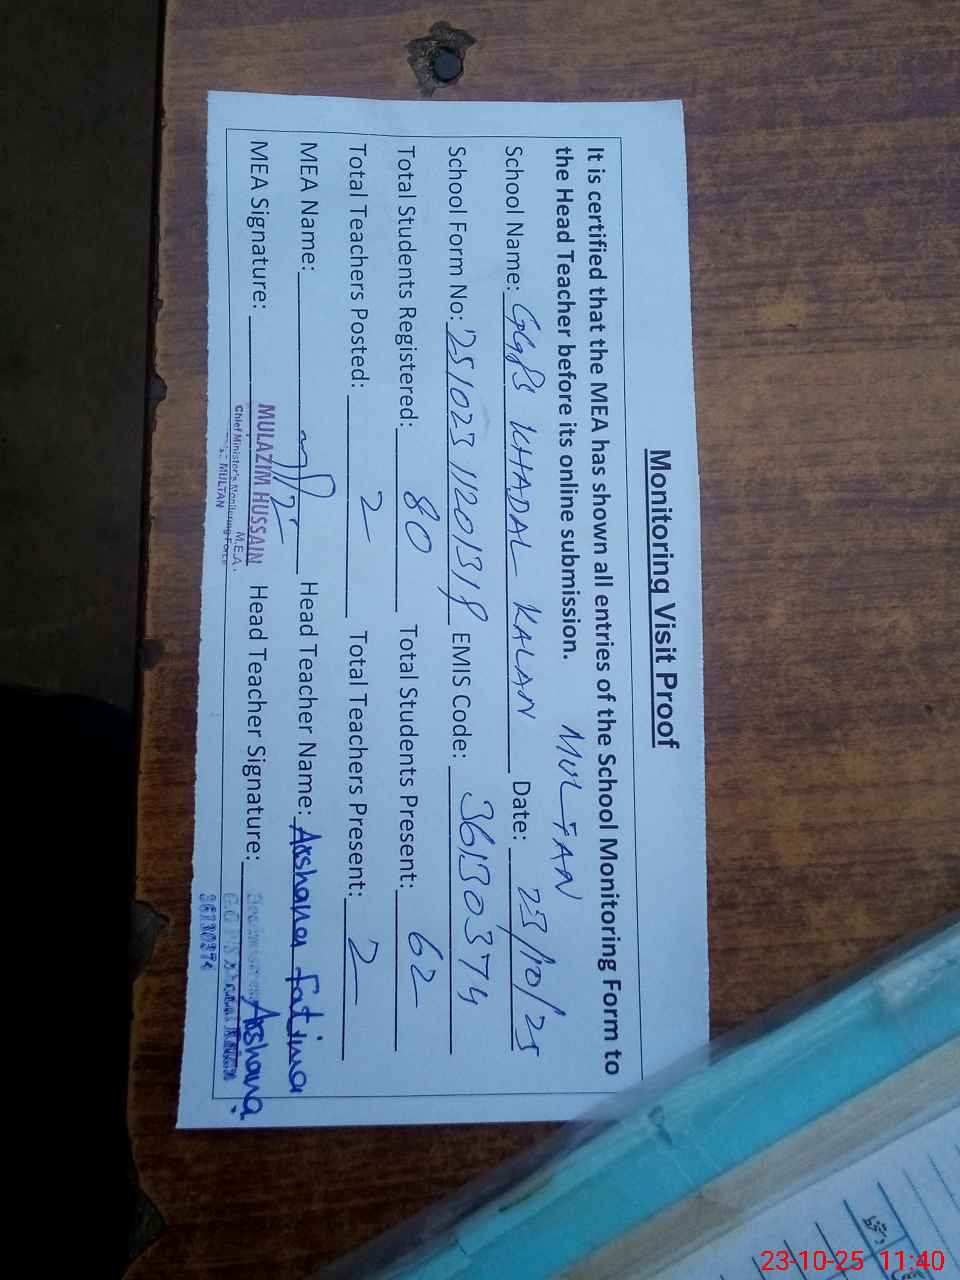 Monitoring Visit Proof
It is certified that the MEA has shown all entries of the School Monitoring Form to
the Head Teacher before its online submission. MULTAN
School Name: GGPS KHADAL KALAN Date: 23/10/25
School Form No: 251023 11201318 EMIS Code: 36130374
Total Students Registered: 80 Total Students Present: 62
Total Teachers Posted: 2 Total Teachers Present: 2
MEA Name: Head Teacher Name: Arshana Fatima
MEA Signature: Head Teacher Signature: Arshana
MULAZIM HUSSAIN
M.E.A.
Chief Minister's Monitoring Force
MULTAN
36130374
23-10-25 11:40